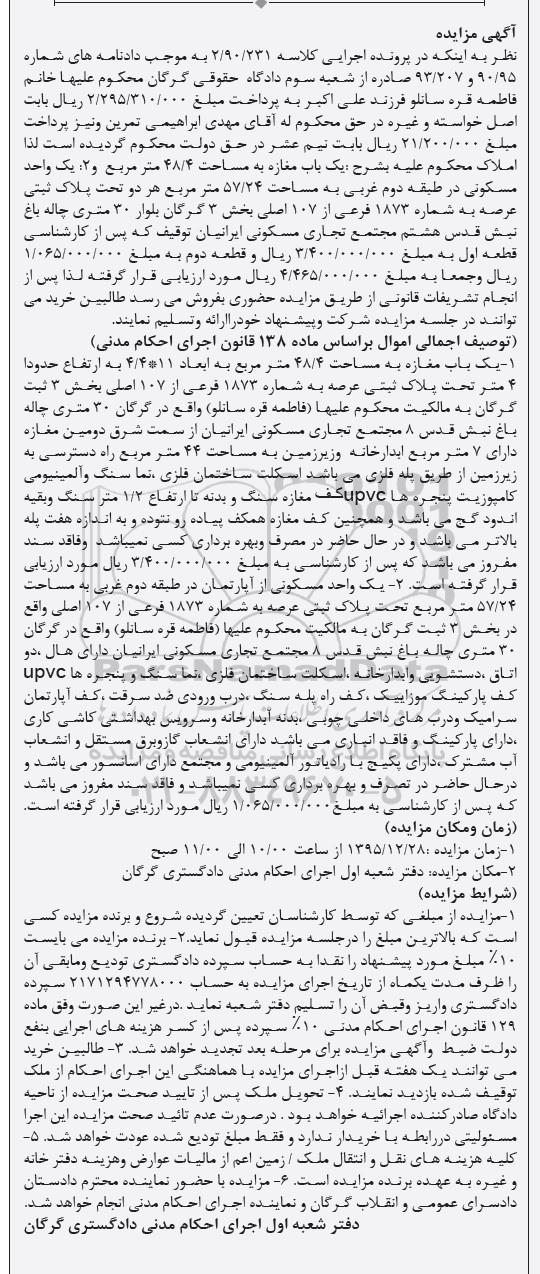 آگهی مزایده
نظر به اینکه در پرونده اجرایی کلاسه ۲/۹۰/۲۳۱ به موجب دادنامه های شماره
۹۰/۹۵ و ۹۳/۲۰۷ صادره از شعبه سوم دادگاه حقوقی گرگان محکوم علیها خانم
فاطمه قره سانلو فرزند علی اکبر به پرداخت مبلغ ۲/۲۹۵/۳۱۰/۰۰۰ ریال بابت
اصل خواسته و غیره در حق محکوم له آقای مهدی ابراهیمی تمرین ونیز پرداخت
مبلغ ۲۱/۲۰۰/۰۰۰ ریال بابت نیم عشر در حق دولت محکوم گردیده است لذا
املاک محکوم علیه بشرح :یک باب مغازه به مساحت ۴۸/۴ متر مربع و۲: یک واحد
مسکونی در طبقه دوم غربی به مساحت ۵۷/۲۴ متر مربع هر دو تحت پلاک ثبتی
عرصه به شماره ۱۸۷۳ فرعی از ۱۰۷ اصلی بخش ۳ گرگان بلوار ۳۰ متری چاله باغ
نبش قدس هشتم مجتمع تجاری مسکونی ایرانیان توقیف که پس از کارشناسی
قطعه اول به مبلغ ۳/۴۰۰/۰۰۰/۰۰۰ ریال و قطعه دوم به مبلغ ۱/۰۶۵/۰۰۰/۰۰۰
ریال وجمعا به مبلغ ۴/۴۶۵/۰۰۰/۰۰۰ ریال مورد ارزیابی قرار گرفته لذا پس از
انجام تشریفات قانونی از طریق مزایده حضوری بفروش می رسد طالبین خرید می
توانند در جلسه مزایده شرکت وپیشنهاد خودراارائه وتسلیم نمایند.
(توصیف اجمالی اموال براساس ماده ۱۳۸ قانون اجرای احکام مدنی)
۱-یک باب مغازه به مساحت ۴۸/۴ متر مربع به ابعاد ۱۱*۴/۴ به ارتفاع حدودا
۴ متر تحت پلاک ثبتی عرصه به شماره ۱۸۷۳ فرعی از ۱۰۷ اصلی بخش ۳ ثبت
گرگان به مالکیت محکوم علیها (فاطمه قره سانلو) واقع در گرگان ۳۰ متری چاله
باغ نبش قدس ۸ مجتمع تجاری مسکونی ایرانیان از سمت شرق دومین مغازه
دارای ۷ متر مربع ابدارخانه وزیرزمین به مساحت ۴۴ متر مربع راه دسترسی به
زیرزمین از طریق پله فلزی می باشد اسکلت ساختمان فلزی ،نما سنگ وآلمینیومی
کامپوزیت پنجره ها upvcکف مغازه سنگ و بدنه تا ارتفاع ۱/۲ متر سنگ وبقیه
اندود گچ می باشد و همچنین کف مغازه همکف پیاده رو نتوده و به اندازه هفت پله
بالاتر می باشد و در حال حاضر در مصرف وبهره برداری کسی نمیباشد وفاقد سند
مفروز می باشد که پس از کارشناسی به مبلغ ۳/۴۰۰/۰۰۰/۰۰۰ ریال مورد ارزیابی
قرار گرفته است. ۲- یک واحد مسکونی از آپارتمان در طبقه دوم غربی به مساحت
۵۷/۲۴ متر مربع تحت پلاک ثبتی عرصه به شماره ۱۸۷۳ فرعی از ۱۰۷ اصلی واقع
در بخش ۳ ثبت گرگان به مالکیت محکوم علیها (فاطمه قره سانلو) واقع در گرگان
۳۰ متری چاله باغ نبش قدس ۸ مجتمع تجاری مسکونی ایرانیان دارای هال ،دو
اتاق ،دستشویی وابدارخانه ،اسکلت ساختمان فلزی ،نما سنگ و پنجره ها upvc
کف پارکینگ موزاییک ،کف راه پله سنگ ،درب ورودی ضد سرقت ،کف آپارتمان
سرامیک ودرب های داخلی چوبی ،بدنه آبدارخانه وسرویس بهداشتی کاشی کاری
،دارای پارکینگ و فاقد انباری می باشد دارای انشعاب گازوبرق مستقل و انشعاب
آب مشترک ،دارای پکیج با رادیاتور آلمینیومی و مجتمع دارای آسانسور می باشد و
درحال حاضر در تصرف و بهره برداری کسی نمیباشد و فاقد سند مفروز می باشد
که پس از کارشناسی به مبلغ۱/۰۶۵/۰۰۰/۰۰۰ ریال مورد ارزیابی قرار گرفته است.
(زمان ومکان مزایده)
۱-زمان مزایده :۱۳۹۵/۱۲/۲۸ از ساعت ۱۰/۰۰ الی ۱۱/۰۰ صبح
۲-مکان مزایده: دفتر شعبه اول اجرای احکام مدنی دادگستری گرگان
(شرایط مزایده)
۱-مزایده از مبلغی که توسط کارشناسان تعیین گردیده شروع و برنده مزایده کسی
است که بالاترین مبلغ را درجلسه مزایده قبول نماید.۲- برنده مزایده می بایست
۱۰٪ مبلغ مورد پیشنهاد را نقدا به حساب سپرده دادگستری تودیع ومابقی آن
را ظرف مدت یکماه از تاریخ اجرای مزایده به حساب ۲۱۷۱۲۹۴۷۷۸۰۰۰ سپرده
دادگستری واریز وقبض آن را تسلیم دفتر شعبه نماید .درغیر این صورت وفق ماده
۱۲۹ قانون اجرای احکام مدنی ۱۰٪ سپرده پس از کسر هزینه های اجرایی بنفع
دولت ضبط وآگهی مزایده برای مرحله بعد تجدید خواهد شد. ۳- طالبین خرید
می توانند یک هفته قبل ازاجرای مزایده با هماهنگی این اجرای احکام از ملک
توقیف شده بازدید نمایند. ۴- تحویل ملک پس از تایید صحت مزایده از ناحیه
دادگاه صادرکننده اجرائیه خواهد بود . درصورت عدم تائید صحت مزایده این اجرا
مسئولیتی دررابطه با خریدار ندارد و فقط مبلغ تودیع شده عودت خواهد شد. ۵-
کلیه هزینه های نقل و انتقال ملک / زمین اعم از مالیات عوارض وهزینه دفتر خانه
و غیره به عهده برنده مزایده است. ۶- مزایده با حضور نماینده محترم دادستان
دادسرای عمومی و انقلاب گرگان و نماینده اجرای احکام مدنی انجام خواهد شد.
دفتر شعبه اول اجرای احکام مدنی دادگستری گرگان
ParsNamadData
پایگاه اطلاع رسانی مناقصه و مزایده
۰۲۱-۸۸۳۴۹۶۷۰-۵